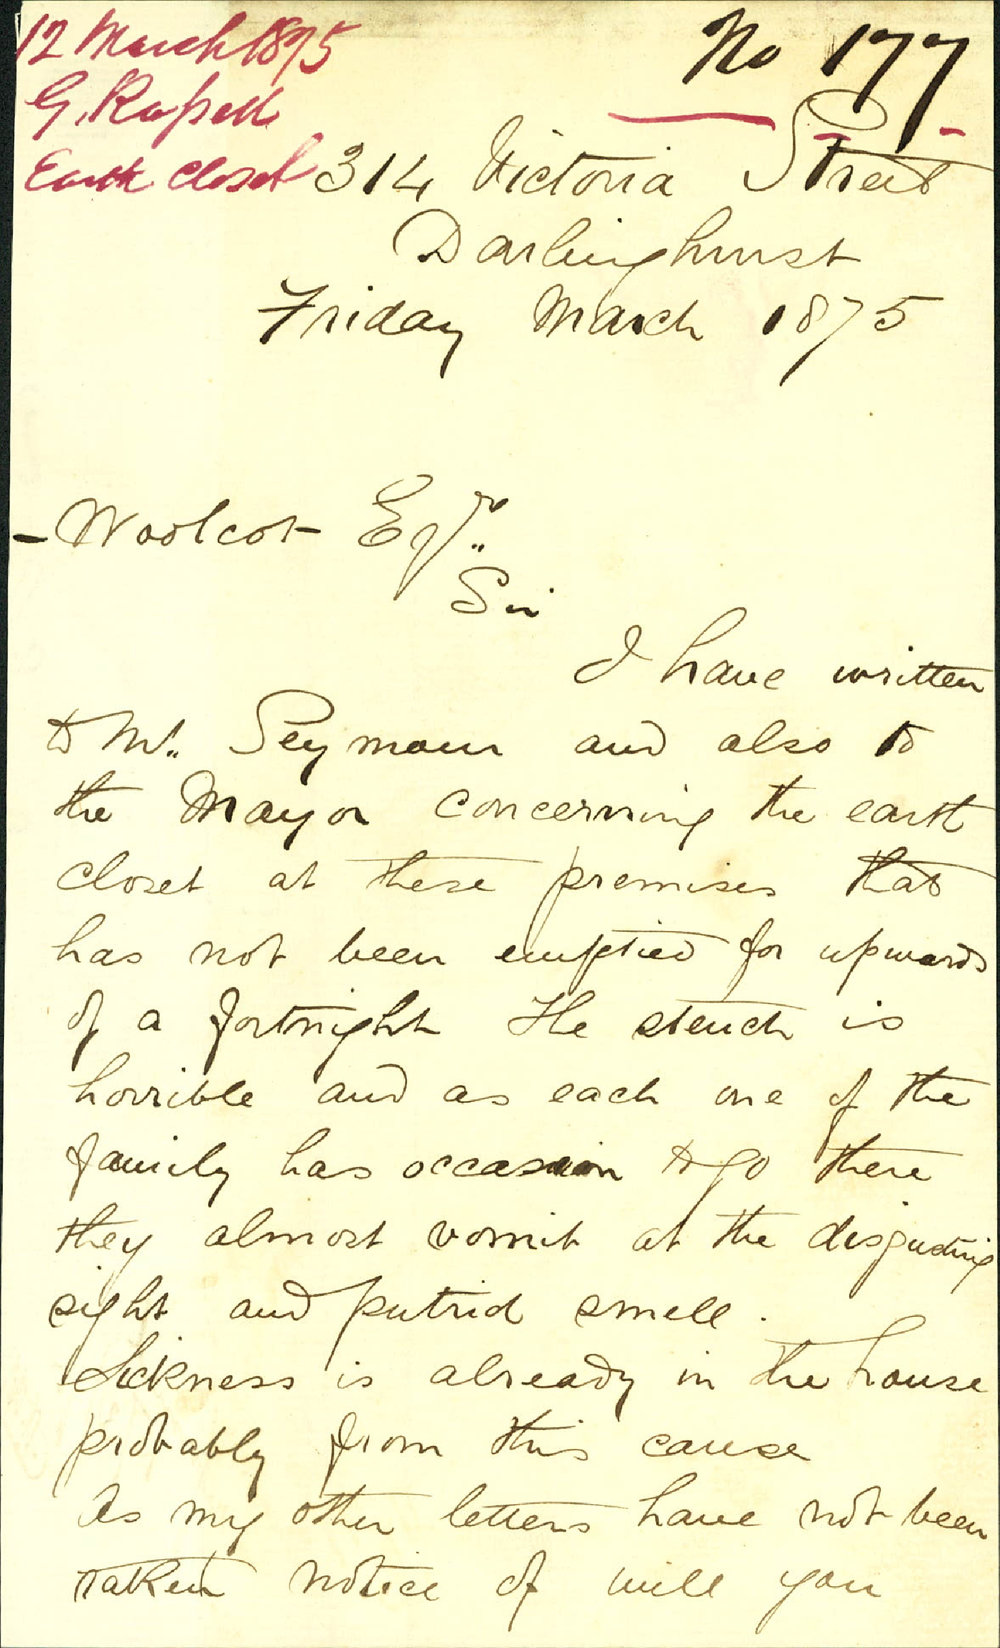 12 March 1875
No 177
G. Russell
Earth Closet
314 Victoria Street
Darlinghurst
Friday March 1875
- Woolcot Esqr.
Sir
I have written
to Mr. Seymour and also to
the Mayor concerning the earth
closet at these premises that
has not been emptied for upwards
of a fortnight The stench is
horrible and as each one of the
family has occasion to go there
they almost vomit at the disgusting
sight and putrid smell.
Sickness is already in the house
probably from this cause
As my other letters have not been
taken notice of will you